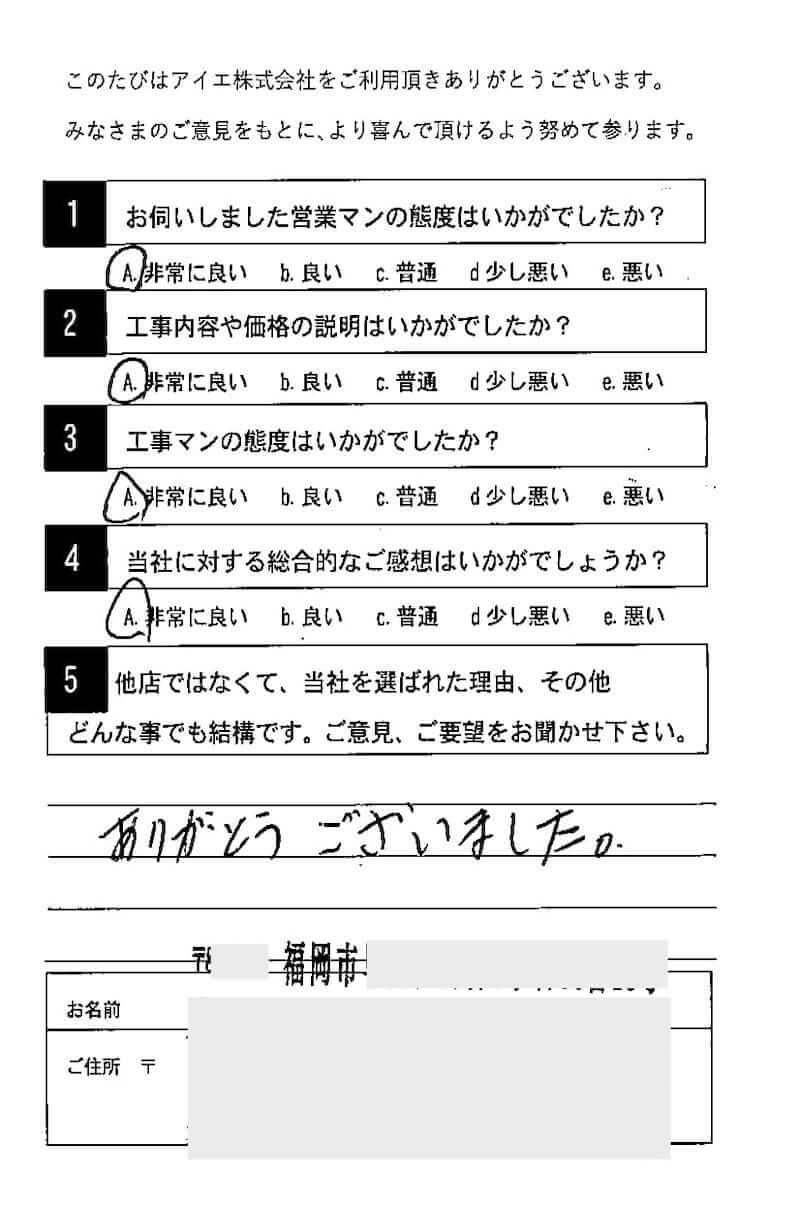 このたびはアイエ株式会社をご利用頂きありがとうございます。
みなさまのご意見をもとに、より喜んで頂けるよう努めて参ります。
1 お伺いしました営業マンの態度はいかがでしたか？
A. 非常に良い b. 良い c. 普通 d 少し悪い e. 悪い
2 工事内容や価格の説明はいかがでしたか？
A. 非常に良い b. 良い c. 普通 d 少し悪い e. 悪い
3 工事マンの態度はいかがでしたか？
A. 非常に良い b. 良い c. 普通 d 少し悪い e. 悪い
4 当社に対する総合的なご感想はいかがでしょうか？
A. 非常に良い b. 良い c. 普通 d 少し悪い e. 悪い
5 他店ではなくて、当社を選ばれた理由、その他
どんな事でも結構です。ご意見、ご要望をお聞かせ下さい。
ありがとうございました。
〒 福岡市
お名前
ご住所 〒